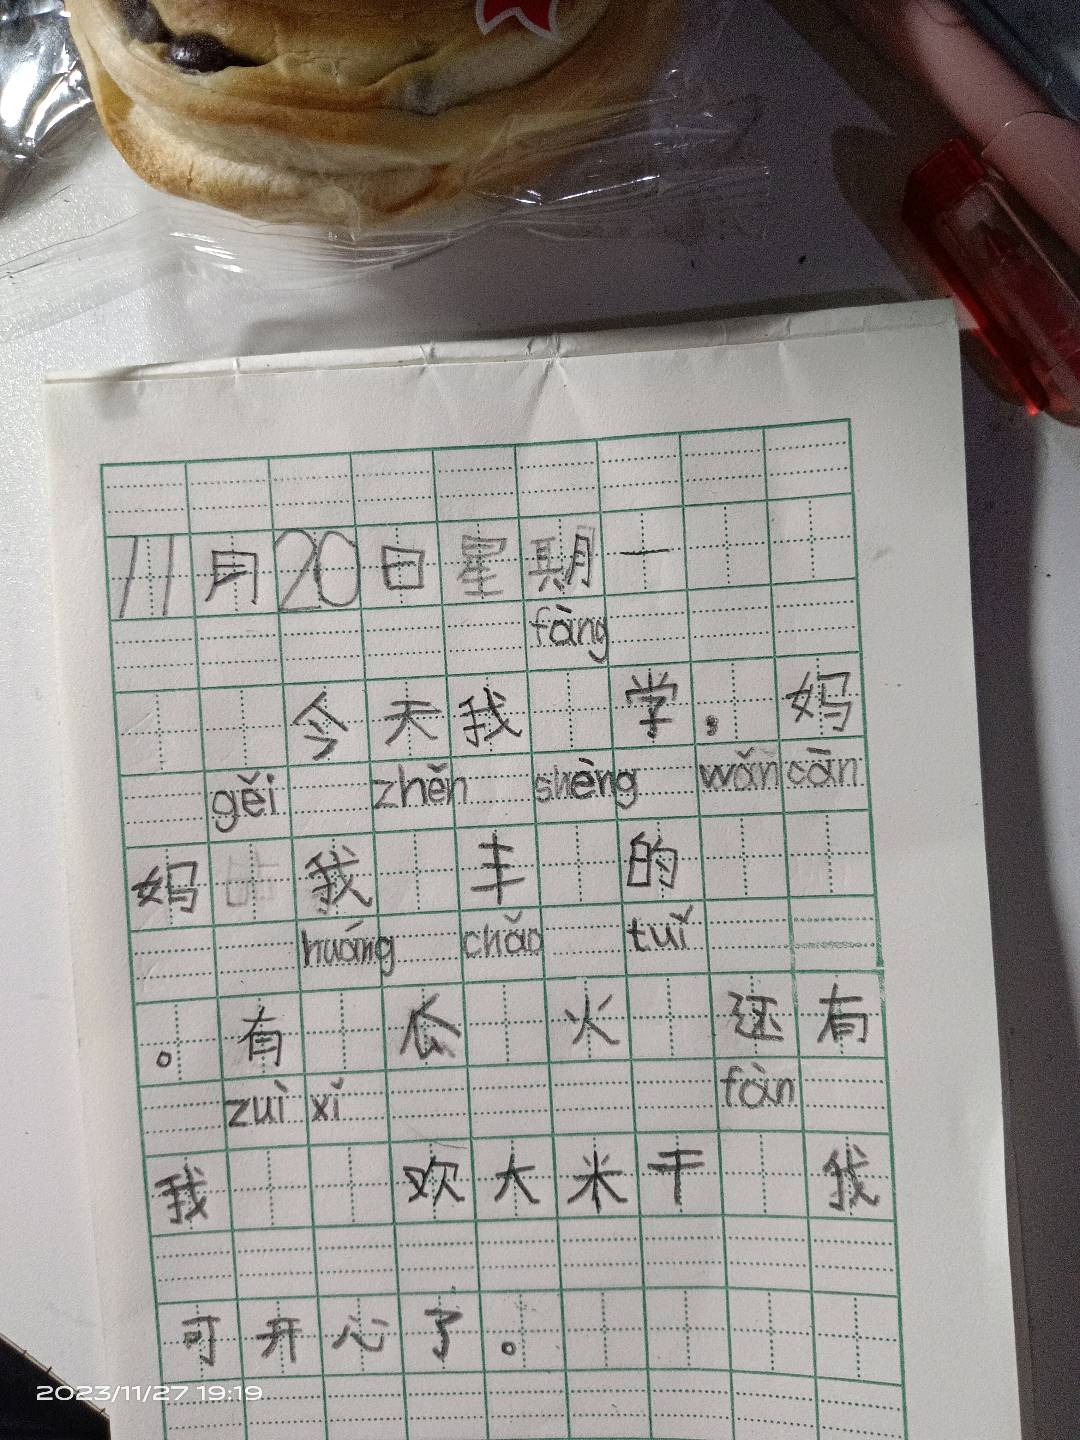 11月20日星期一
fàng
今天我 学，妈
gěi zhěn shèng wǎn cān
妈 我 丰 的
huáng chǎo tuǐ
。有 瓜 火 还有
zuì xǐ fàn
我 欢大米干 我
可开心了。
2023/11/27 19:19